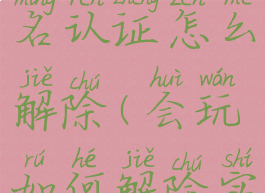 míng rèn zhèng zěn me
名认证怎么
jiě chú huì wán
解除(会玩
rú hé jiě chú shí
如何解除实